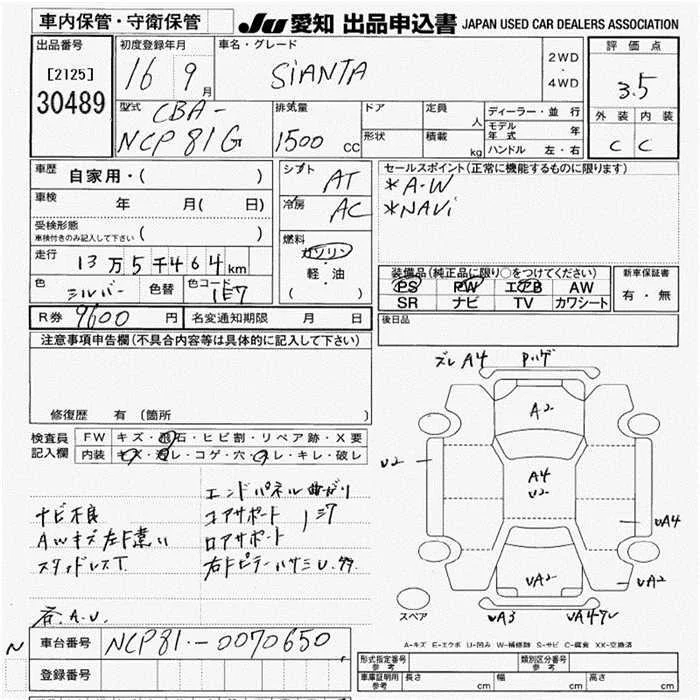 車内保管・守衛保管
JU 愛知 出品申込書 JAPAN USED CAR DEALERS ASSOCIATION
出品番号
[2125]
30489
初度登録年月
16 9月
車名・グレード
SiANTA
2WD
・
4WD
評価点
3.5
外装 内装
C C
型式
CBA-
NCP81G
排気量
1500 CC
ドア
定員 人
形状
積載 kg
ディーラー・並行
モデル年式 年
ハンドル 左・右
車歴
自家用・( )
車検 年 月( 日)
受検形態
車検付きのみ記入して下さい ( )
走行 13万5千464km
色 シルバー 色替 色コード 1E7
シフト AT
冷房 AC
燃料
ガソリン
・
軽・油
( )
セールスポイント(正常に機能するものに限ります)
*A・W
*NAVi
装備品(純正品に限り○をつけてください)
PS PW エアB AW
SR ナビ TV カワシート
新車保証書
有・無
R券 9600 円 名変通知期限 月 日
後日品
注意事項申告欄(不具合内容等は具体的に記入して下さい)
修復歴 有 〔箇所 〕
検査員記入欄
FW キズ・飛石・ヒビ割・リペア跡・X要
内装 キズ・汚レ・コゲ・穴・スレ・キレ・破レ
エンドパネル曲がり
ナビ不良
コアサポート
AWキズ左F悪い
ロアサポート
スタッドレスT
各A.U.
ズレA4
A2
U2
A4
U2
UA4
UA2
UA2
スペア
UA3
A-キズ E-エクボ U-凹み W-補修跡 S-サビ C-腐食 XX-交換済
N
車台番号 NCP81-0070650
登録番号
形式指定番号 参考
類別区分番号 参考
車庫証明用 参考 長さ cm 幅 cm 高さ cm